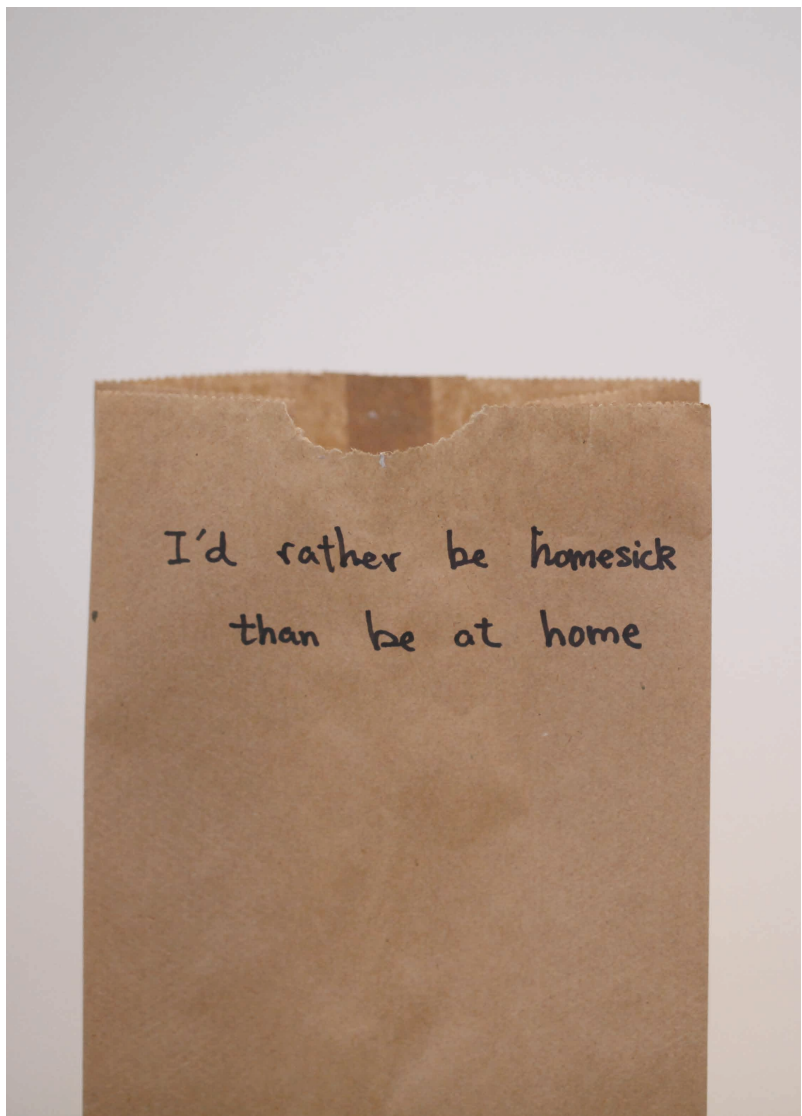 I'd rather be homesick
than be at home